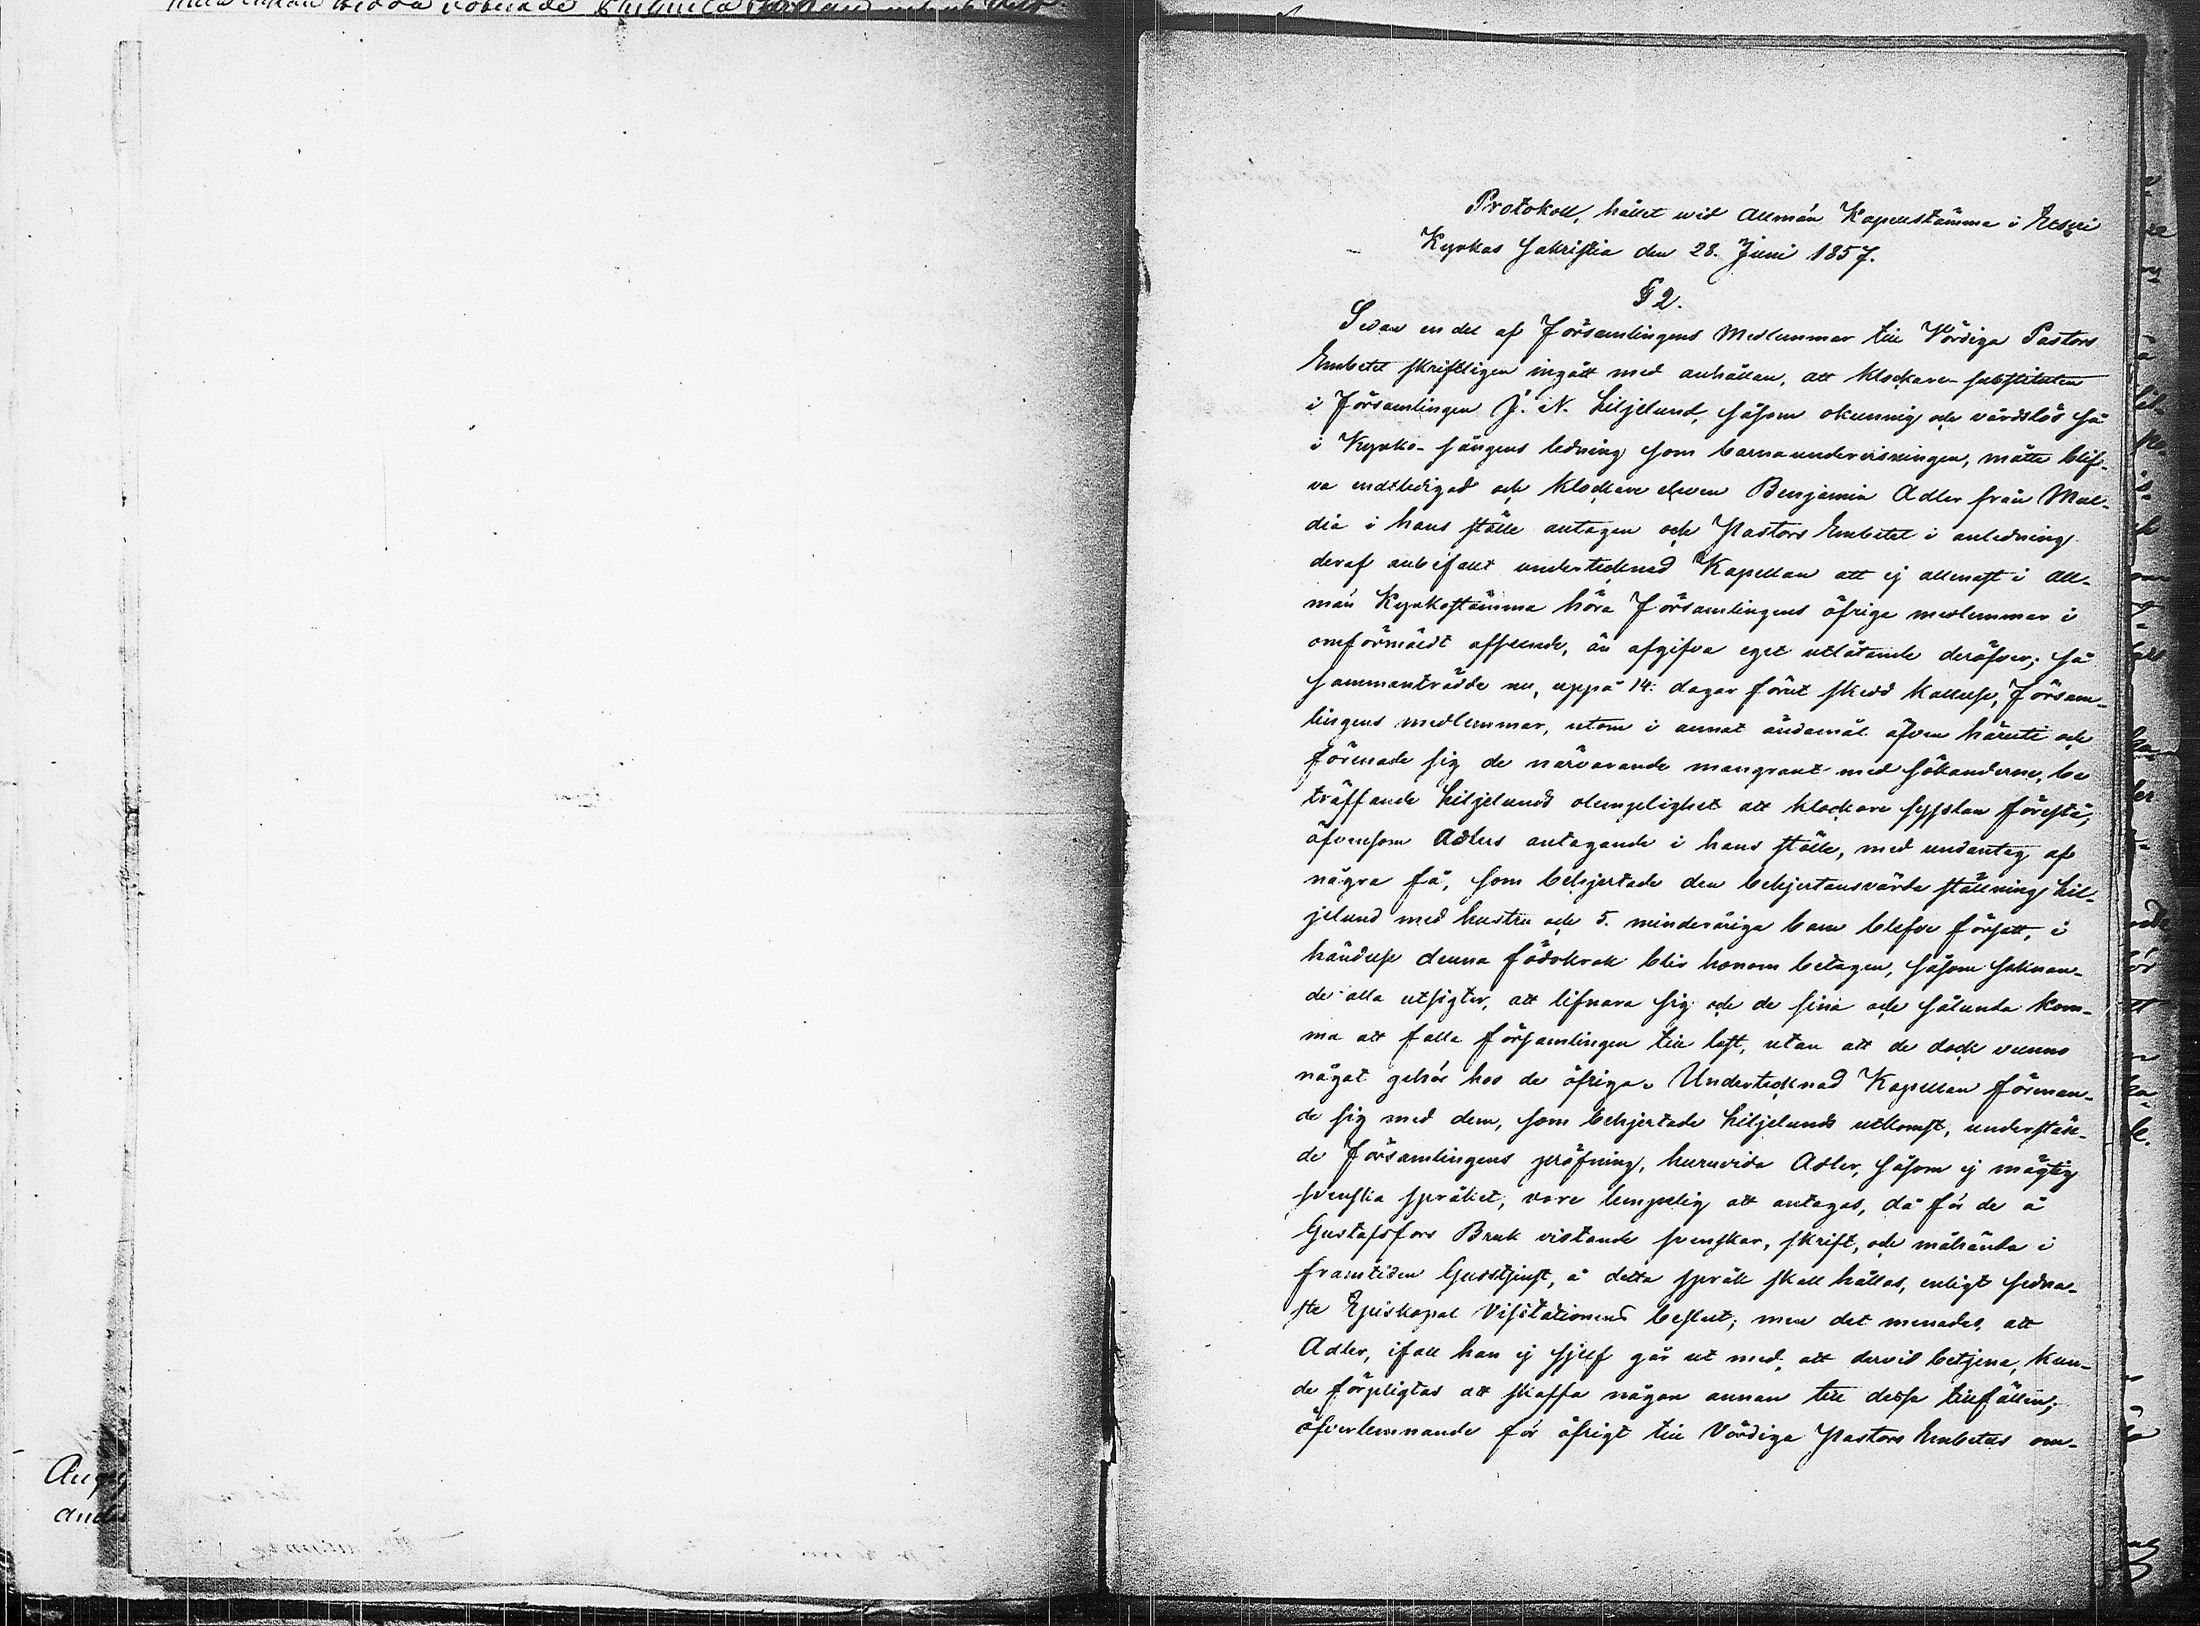 Protokoll, hållet wid Allmän Kapellstämma i Etseri
Kyrkas Sakristia den 28. Juni 1857.
§ 2.
Sedan en del af Församlingens Medlemmar till Vördiga Pastors
Embetet skriftligen ingått med anhållan, att klockare-substituten
i Församlingen J. N. Liljelund, såsom okunnig och vårdslös så
i Kyrko-sångens ledning som barnaundervisningen, måtte blif-
va endtledigad och klockare eleven Benjamin Adler från Mul-
dia i hans ställe antagen och Pastors Embetet i anledning
deraf anbefallt undertecknad Kapellan att ej allenast i All-
män Kyrkostämma höra Församlingens öfrige medlemmar i
omförmäldt afseende, än afgifva eget utlåtande deröfver; så
sammanträdde nu, uppå 14. dagar förut skedd kallelse, Försam-
lingens medlemmar, utom i annat ändamål äfven häruti och
förenade sig de närvarande mangrant med sökanderne, be
träffande Liljelunds olempelighet att klockare sysslan förestå,
äfvensom Adlers antagande i hans ställe, med undantag af
några få, som behjertade den behjertansvärda ställning Lil-
jelund med hustru och 5. minderåriga barn blefve försatt, i
händelse denna födokrok blir honom betagen, såsom saknan-
de alla utsigter, att lifnära sig och de sina och sålunda kom-
ma att falla församlingen till last, utan att de dock vunno
något gehör hos de öfriga. Undertecknad Kapellan förenan-
de sig med dem, som behjertade Liljelunds utkomst, underställ-
de Församlingens pröfning, huruvida Adler, såsom ej mägtig
svenska språket, vore lempelig att antagas, då för de å
Gustafsfors Bruk vistande svenskar, skrift, och måhända i
framtiden Gudstjenst, å detta språk skall hållas, enligt sedna-
ste Episkopal Visitationens beslut; men det menades, att
Adler, ifall han ej sjelf går ut med, att dervid betjena, kun-
de förpligtas att skaffa någon annan till dessa tillfällen;
öfverlemnande för öfrigt till Vördiga Pastors Embetets om-